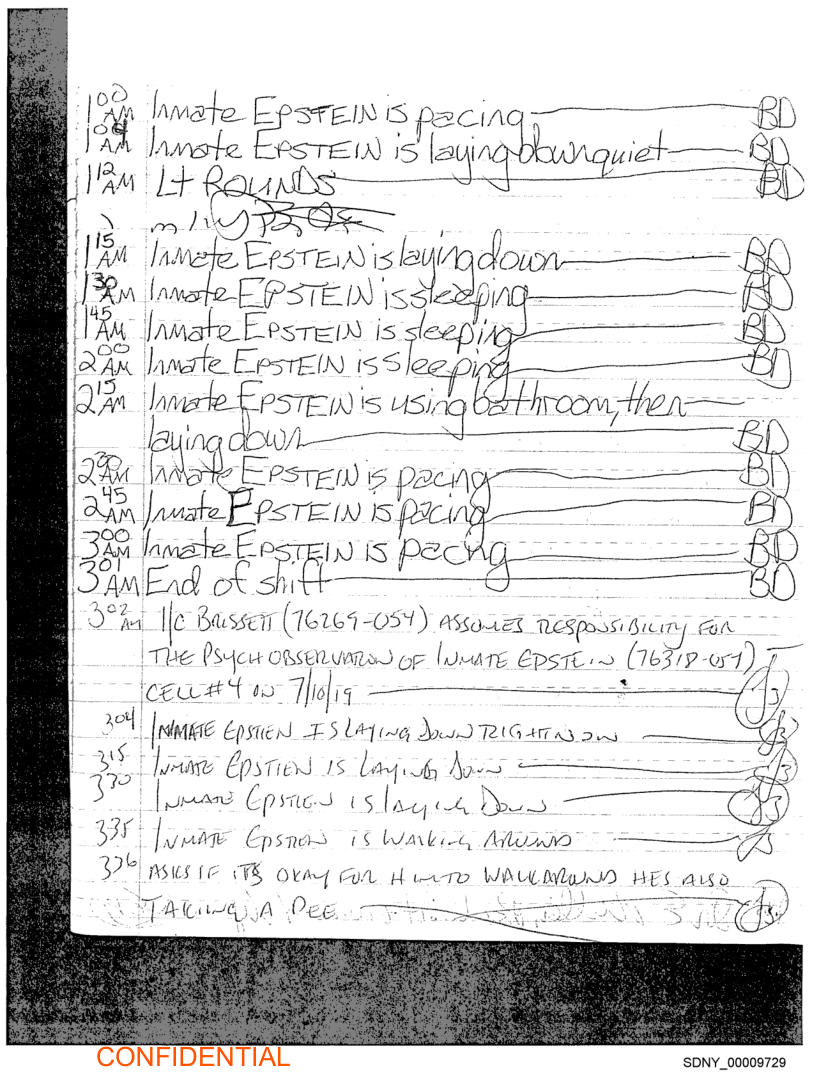 1 00 AM Inmate EPSTEIN is pacing BD
1 04 AM Inmate EPSTEIN is laying down quiet BD
1 12 AM Lt ROUNDS BD
1 15 AM Inmate EPSTEIN is laying down BD
1 30 AM Inmate EPSTEIN is sleeping BD
1 45 AM Inmate EPSTEIN is sleeping BD
2 00 AM Inmate EPSTEIN is sleeping BD
2 15 AM Inmate EPSTEIN is using bathroom, then
laying down BD
2 30 AM Inmate EPSTEIN is pacing BD
2 45 AM Inmate EPSTEIN is pacing BD
3 00 AM Inmate EPSTEIN is pacing BD
3 01 AM End of shift BD
3 02 AM I/C BRISSETT (76269-054) ASSUMES RESPONSIBILITY FOR
THE PSYCH OBSERVATION OF INMATE EPSTEIN (76318-054)
CELL #4 ON 7/10/19
304 INMATE EPSTIEN IS LAYING DOWN RIGHT NOW
315 INMATE EPSTIEN IS LAYING DOWN
330 INMATE EPSTIEN IS LAYING DOWN
335 INMATE EPSTIEN IS WALKING AROUND
336 ASKS IF ITS OKAY FOR HIM TO WALK AROUND HES ALSO
TAKING A PEE
CONFIDENTIAL
SDNY_00009729